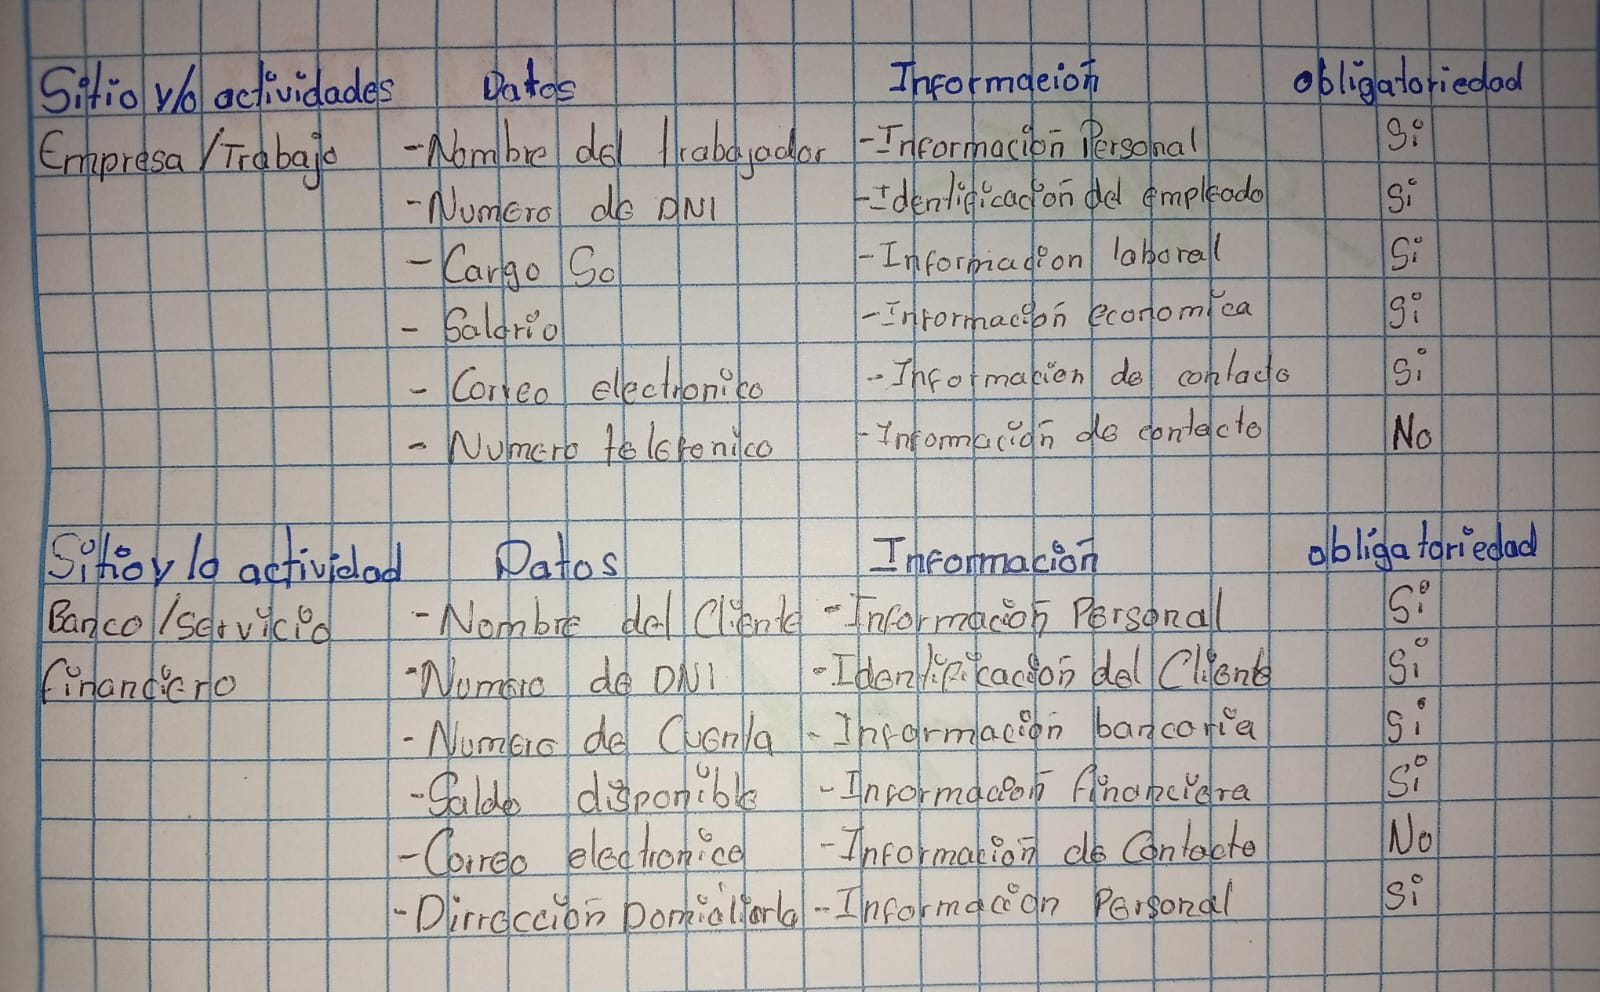 Sitio y/o actividades Datos Información obligatoriedad
Empresa / Trabajo - Nombre del trabajador - Información Personal Si
- Numero de DNI - Identificación del empleado Si
- Cargo So - Informacion laboral Si
- Salario - Información economica Si
- Correo electronico - Informacion de contacto Si
- Numero telefonico - Información de contacto No
Sitio y lo actividad Datos Información obligatoriedad
Banco / Servicio - Nombre del Cliente - Información Personal Si
financiero - Numero de DNI - Identificación del Cliente Si
- Numero de Cuenta - Información bancaria Si
- Saldo disponible - Información financiera Si
- Correo electronico - Información de Contacto No
- Dirrección - Información Personal Si